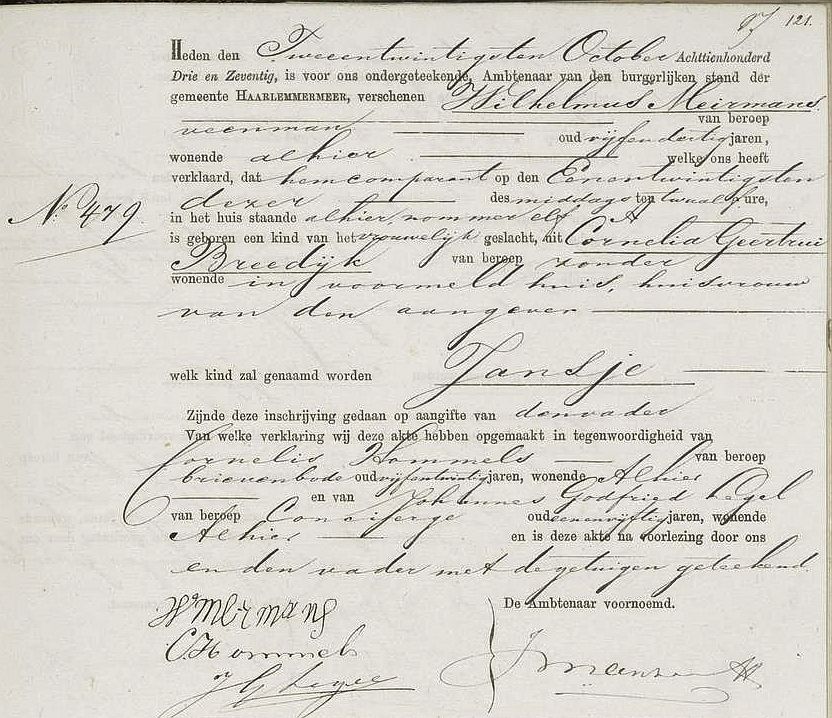 121.
Heden den Tweeentwintigsten October Achttienhonderd
Drie en Zeventig, is voor ons ondergeteekende, Ambtenaar van den burgerlijken stand der
gemeente HAARLEMMERMEER, verschenen Wilhelmus Meirmans
van beroep
veenman oud vijfendertig jaren,
wonende alhier welke ons heeft
verklaard, dat hem comparant op den Eenentwintigsten
dezer des middags ten twaalf ure,
No 479.
in het huis staande alhier nommer elf A
is geboren een kind van het vrouwelijk geslacht, uit Cornelia Geertrui
Breedijk van beroep zonder
wonende in voormeld huis, huisvrouw
van den aangever
welk kind zal genaamd worden Jansje
Zijnde deze inschrijving gedaan op aangifte van den vader
Van welke verklaring wij deze akte hebben opgemaakt in tegenwoordigheid van
Cornelis Hommels van beroep
brievenbode oud vijfentwintig jaren, wonende Alhier
en van Johannes Godfried Legel
van beroep Concierge oud eenenvijftig jaren, wonende
Alhier en is deze akte na voorlezing door ons
en den vader met de getuigen geteekend.
De Ambtenaar voornoemd.
W Meirmans
C. Hommels
J G Legel